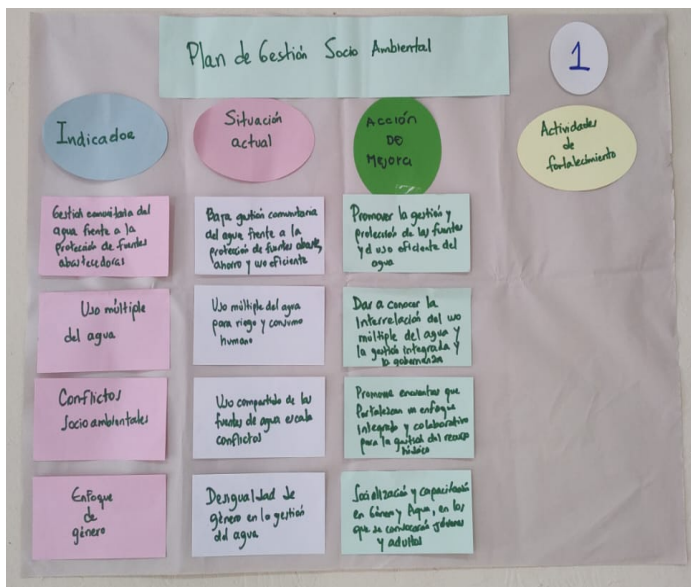 Plan de Gestión Socio Ambiental
1
Indicador
Situación
actual
Acción
De
Mejora
Actividades
de
fortalecimiento
Gestion comunitaria del
agua frente a la
protección de fuentes
abastecedoras
Baja gestion comunitaria
del agua frente a la
protección de fuentes abaste,
ahorro y uso eficiente
Promover la gestión y
protección de las fuentes
y el uso eficiente del
agua
Uso múltiple
del agua
Uso múltiple del agua
para riego y consumo
humano
Dar a conocer la
Interrelación del uso
múltiple del agua y
la gestión integrada y
la gobernanza
Conflictos
Socio ambientales
Uso compartido de las
fuentes de agua escala
conflictos
Promover encuentros que
fortalezcan un enfoque
Integrado y colaborativo
para la gestion del recurso
hídrico
Enfoque
de
género
Desigualdad de
género en la gestión
del agua
Socialización y capacitación
en Género y Agua, en los
que se convocarán jóvenes
y adultos